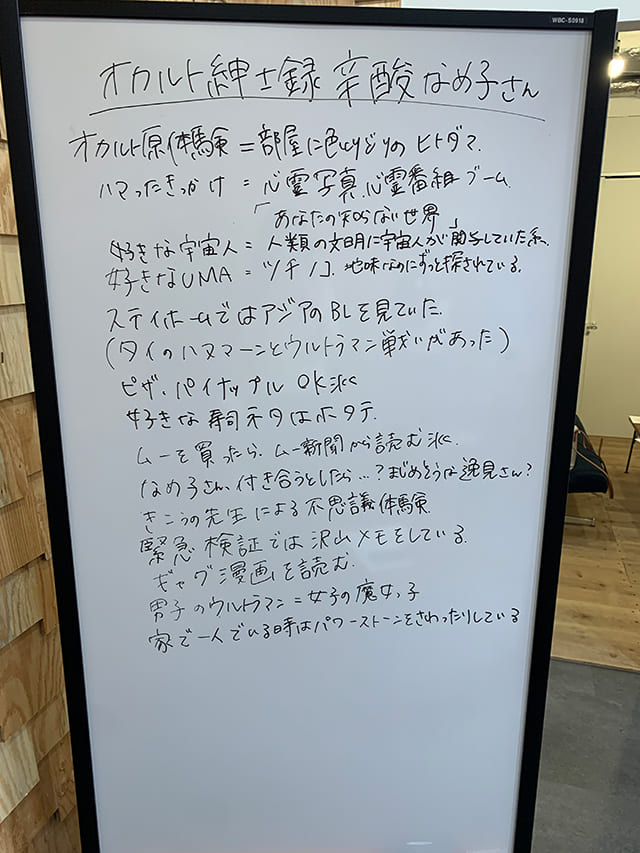 WBC-S0918
オカルト紳士録 辛酸なめ子さん
オカルト原体験=部屋に色とりどりのヒトダマ.
ハマったきっかけ = 心霊写真.心霊番組ブーム.
「あなたの知らない世界」
好きな宇宙人 = 人類の文明に宇宙人が関与していた系.
好きなUMA = ツチノコ. 地味なのにずっと探されている.
ステイホームではアジアのBLを見ていた.
(タイのハヌマーンとウルトラマン戦いがあった)
ピザ・パイナップル OK派
好きな寿司ネタはホタテ.
ムーを買ったら.ムー新聞から読む派.
なめ子さん、付き合うとしたら…?まじめそうな逸見さん?
きこうの先生による不思議体験.
緊急検証では沢山メモをしている.
ギャグ漫画を読む.
男子のウルトラマン=女子の魔女っ子
家で一人でいる時はパワーストーンをさわったりしている